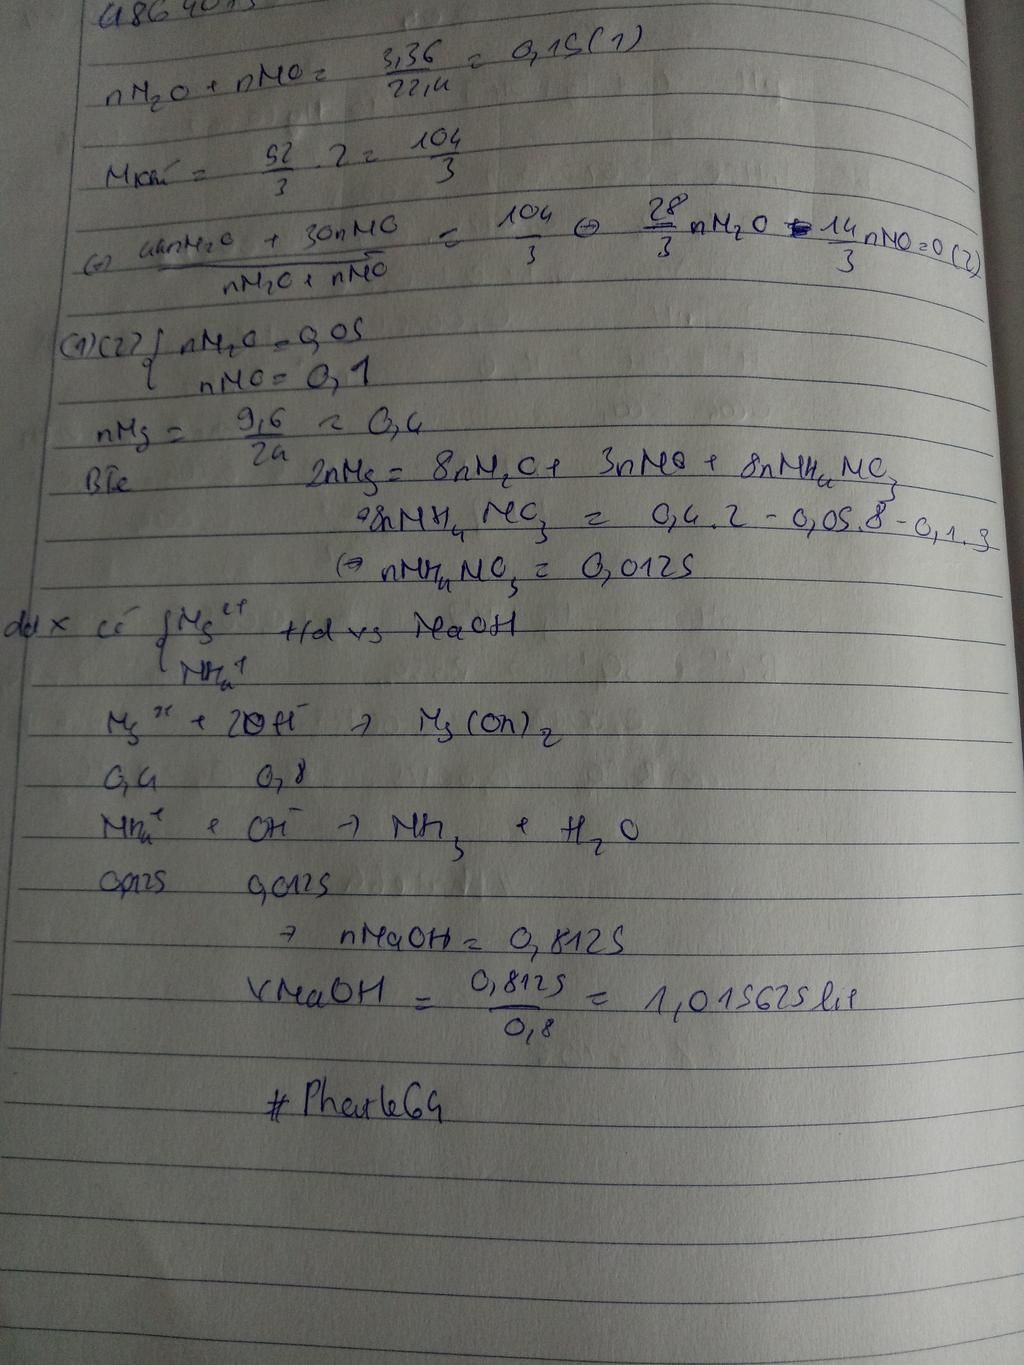 nN₂O + nNO = 3,36/22,4 = 0,15 (1)
Mkhí = 52/3 . 2 = 104/3
(=) (44nN₂O + 30nNO)/(nN₂O + nNO) = 104/3 (=) 28/3 nN₂O - 14/3 nNO = 0 (2)
(1)(2) { nN₂O = 0,05
nNO = 0,1
nMg = 9,6/24 = 0,4
BTe 2nMg = 8nN₂O + 3nNO + 8nNH₄NO₃
8nNH₄NO₃ = 0,4.2 - 0,05.8 - 0,1.3
(=) nNH₄NO₃ = 0,0125
dd X có { Mg²⁺ t/d vs NaOH
NH₄⁺
Mg²⁺ + 2OH⁻ → Mg(OH)₂
0,4 0,8
NH₄⁺ + OH⁻ → NH₃ + H₂O
0,0125 0,0125
→ nNaOH = 0,8125
VNaOH = 0,8125/0,8 = 1,015625 lít